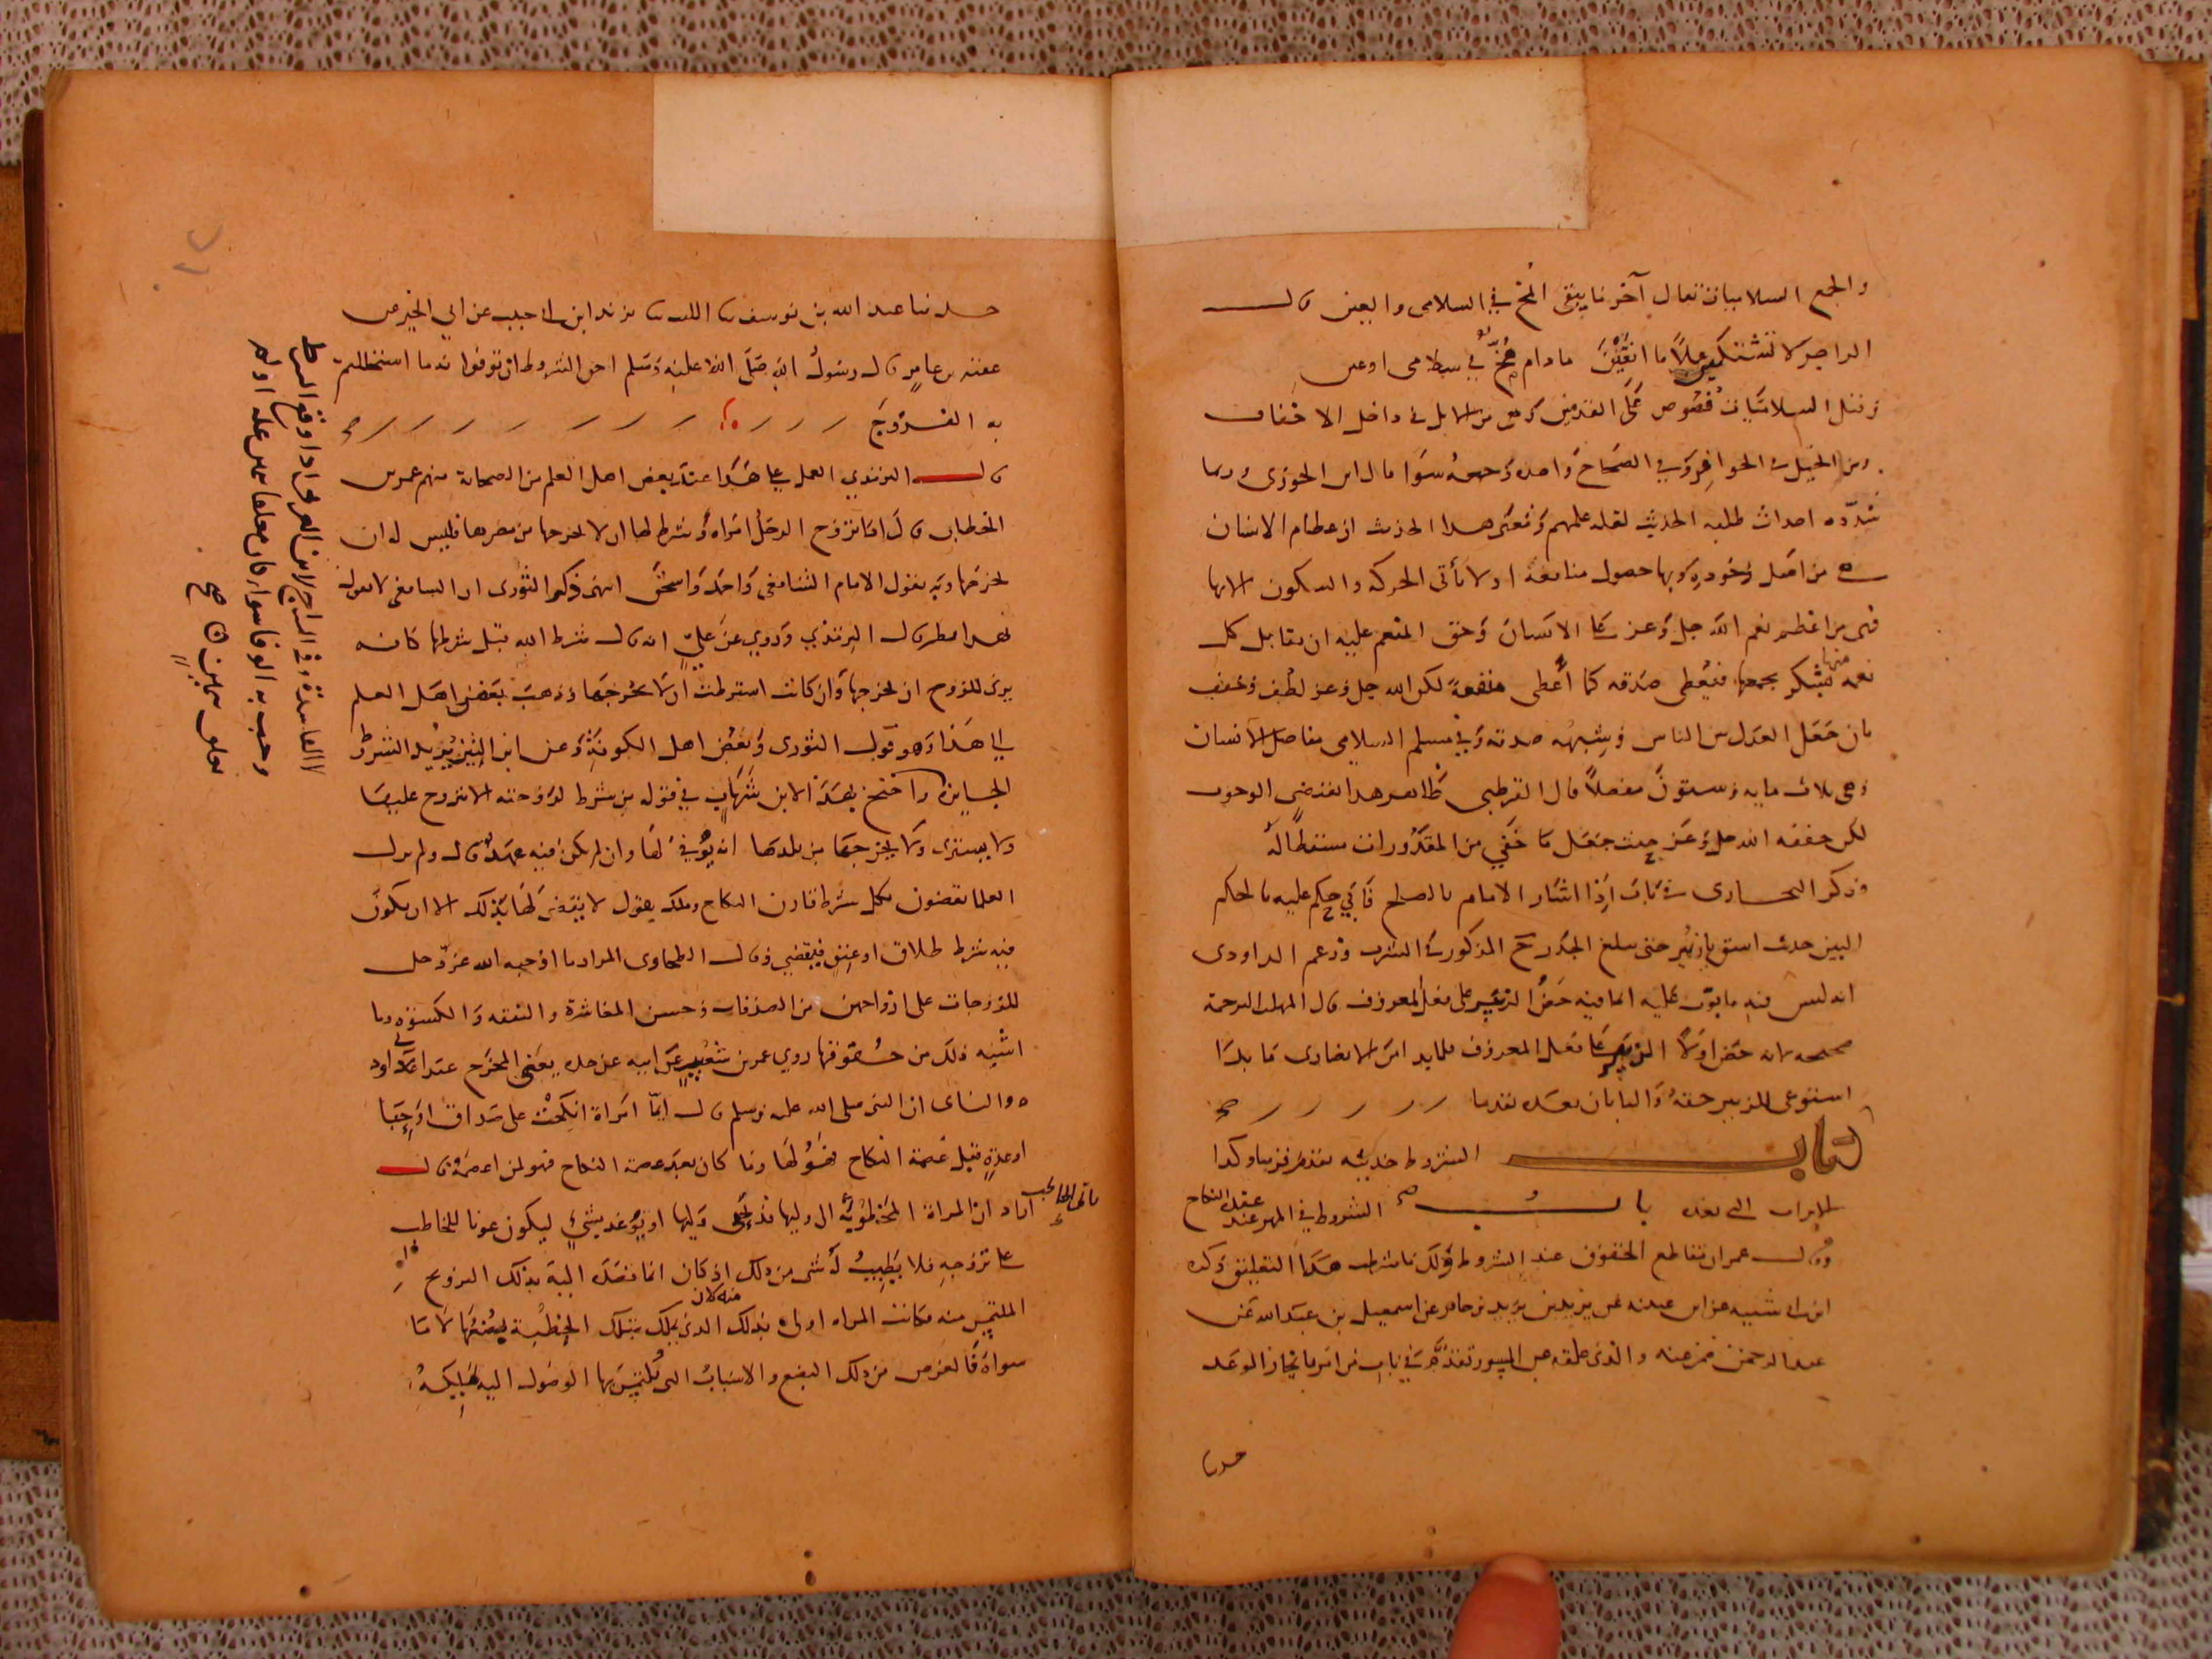 والجمع السلاميات يقال آخر ما يبقى المخ في السلامى والعين قال
الراجز لا تشتكين عملا ما انقين ما دام مخ في سلامى او عين
وقيل السلاميات فصوص على القدمين وهي من الابل في داخل الاخفاف
ومن الخيل في الحوافر وفي الصحاح واحده وجمعه سوا قال ابن الجوزي وربما
شدده احداث طلبه الحديث لقله علمهم ومعنى هذا الحديث ان عظام الانسان
هي من اصل وجوده وبها حصول منافعه اذ لا تأتى الحركه والسكون الا بها
فهي من اعظم نعم الله جل وعز على الانسان وحق المنعم عليه ان يقابل كل
نعمه منها بشكر يخصها فيعطى صدقه كما أعطى منفعة لكن الله جل وعز لطف وخفف
بان جعل العدل بين الناس وشبهه صدقه وفي مسلم السلامى مفاصل الانسان
وهي ثلاث مايه وستون مفصلا قال القرطبي ظاهر هذا يقتضي الوجوب
لكن خففه الله جل وعز حيث جعل ما خفي من المقدورات مسقطا له
وذكر البخاري في باب إذا اشار الامام بالصلح فأبى حكم عليه بالحكم
البين حديث اسق يا زبير حتى يبلغ الجدر المذكور في الشرب وزعم الداودي
انه ليس فيه ما بوب عليه انما فيه حض الزبير على فعل المعروف قال المهلب الترجمة
صحيحه لانه حض اولا الزبير على فعل المعروف فلما بدا من الانصاري ما بدا
استوعى للزبير حقه والبابان بعده تقدما
كتاب الشروط حديثه تقدم قريبا وكذا
الابواب التي بعده باب الشروط في المهر عند عقد النكاح
وقال عمر ان مقاطع الحقوق عند الشروط ولك ما شرطت هذا التعليق ذكره
ابن ابي شيبه عن ابن عيينه عن يزيد بن يزيد بن جابر عن اسمعيل بن عبيد الله عن
عبد الرحمن بن غنم عنه والذي علقه عن المسور تقدم في باب من امر بانجاز الوعد
حدثنا
حدثنا عبد الله بن يوسف ثنا الليث ثنا يزيد ابن ابي حبيب عن ابي الخير عن
عقبه بن عامر قال رسول الله صلى الله عليه وسلم احق الشروط ان توفوا به ما استحللتم
به الفروج
قال الترمذي العمل على هذا عند بعض اهل العلم من الصحابة منهم عمر بن
الخطاب قال اذا تزوج الرجل امراه وشرط لها ان لا يخرجها من مصرها فليس له ان
يخرجها وبه يقول الامام الشافعي واحمد واسحق انتهى ذكر الثوري ان الشافعي لا يقول
بهذا مطر قال الترمذي وروي عن علي انه قال شرط الله قبل شرطها كانه
يرى للزوج ان يخرجها وان كانت اشترطت ان لا يخرجها وذهب بعض اهل العلم
الى هذا وهو قول الثوري وبعض اهل الكوفة وعن ابن التين يريد الشروط
الجايزة واحتج بهذا لابن شهاب في قوله من شرط لزوجته الا يتزوج عليها
ولا يتسرى ولا يخرجها من بلدها انه يوفي لها وان لم يكن فيه عهد قال ولم يزل
العلما يقضون بكل شرط قارن النكاح وملك يقول لا يقضى لها بذلك الا ان يكون
فيه شرط طلاق او عتق فيقضي وقال الطحاوي المراد ما اوجبه الله عز وجل
للزوجات على ازواجهن من الصدقات وحسن المعاشرة والنفقه والكسوة وما
اشبه ذلك من حقوقها روي عمرو بن شعيب عن ابيه عن جده يعنى المخرج عند ابي داود
والنساى ان النبي صلى الله عليه وسلم قال ايما امرأة انكحت على صداق او حبا
او عدة قبل عصمة النكاح فهو لها وما كان بعد عصمة النكاح فهو لمن اعطيه قال
اراد ان المراة المخطوبة الى وليها قد يحبى وليها او يوعد بشئ ليكون عونا للخاطب
على تزوجه فلا يطيب له شي من ذلك اذ كان انما قصد اليه بذلك التزويج
الملتمس منه فكانت المراه اولى بذلك منه لان الذي يملك بتلك الخطبة بضعها لا ما
سواه فالعوض من ذلك البضع والاسباب التي يلتمس بها الوصول اليه